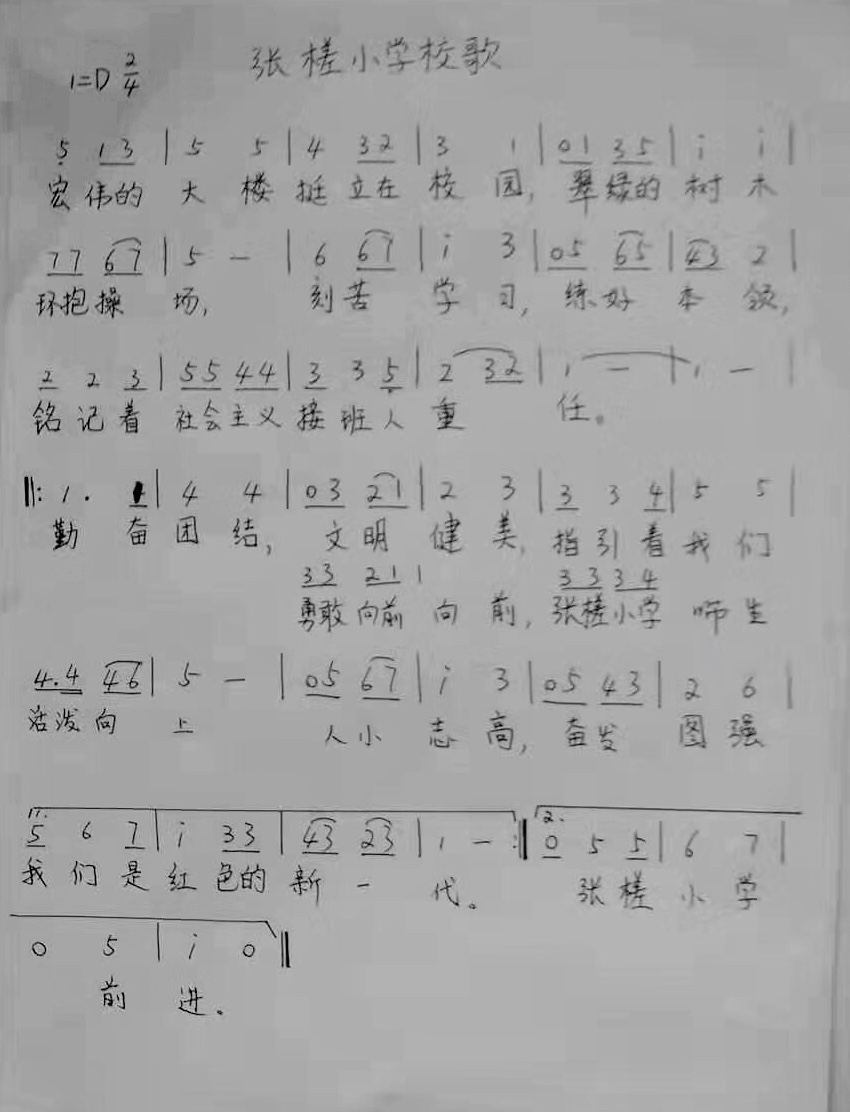 张槎小学校歌
1=D 2/4
5̣ 1 3 | 5 5 | 4 3 2 | 3 1 | 0 1 3 5 | i i |
宏伟的 大 楼 挺立在 校 园, 翠绿的 树 木
7 7 6 7 | 5 — | 6 6 7 | i 3 | 0 5 6 5 | 4 3 2 |
环抱操 场, 刻苦 学 习, 练好 本 领,
2 2 3 | 5 5 4 4 | 3 3 5̣ | 2 3 2 | 1 — | 1 — |
铭记着 社会主义 接班人 重 任。
‖: 1 . 1 | 4 4 | 0 3 2 1 | 2 3 | 3 3 4 | 5 5 |
勤 奋 团 结, 文 明 健 美, 指引着 我 们
3 3 2 1 1 3 3 3 4
勇敢向前 向 前, 张槎小学 师 生
4 . 4 4 6 | 5 — | 0 5 6 7 | i 3 | 0 5 4 3 | 2 6 |
活泼向 上 人小 志 高, 奋发 图 强
1.
5 6 7 | i 3 3 | 4 3 2 3 | 1 — :‖ 2. 0 5 5 | 6 7 |
我 们 是 红 色的 新 一 代。 张 槎 小 学
0 5 | i 0 ‖
前 进。